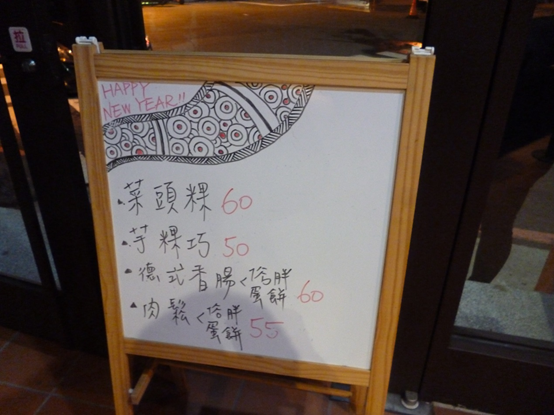 拉
PULL
HAPPY
NEW YEAR!!
菜頭粿 60
芋粿巧 50
德式香腸<佫胖蛋餅 60
肉鬆<佫胖蛋餅 55